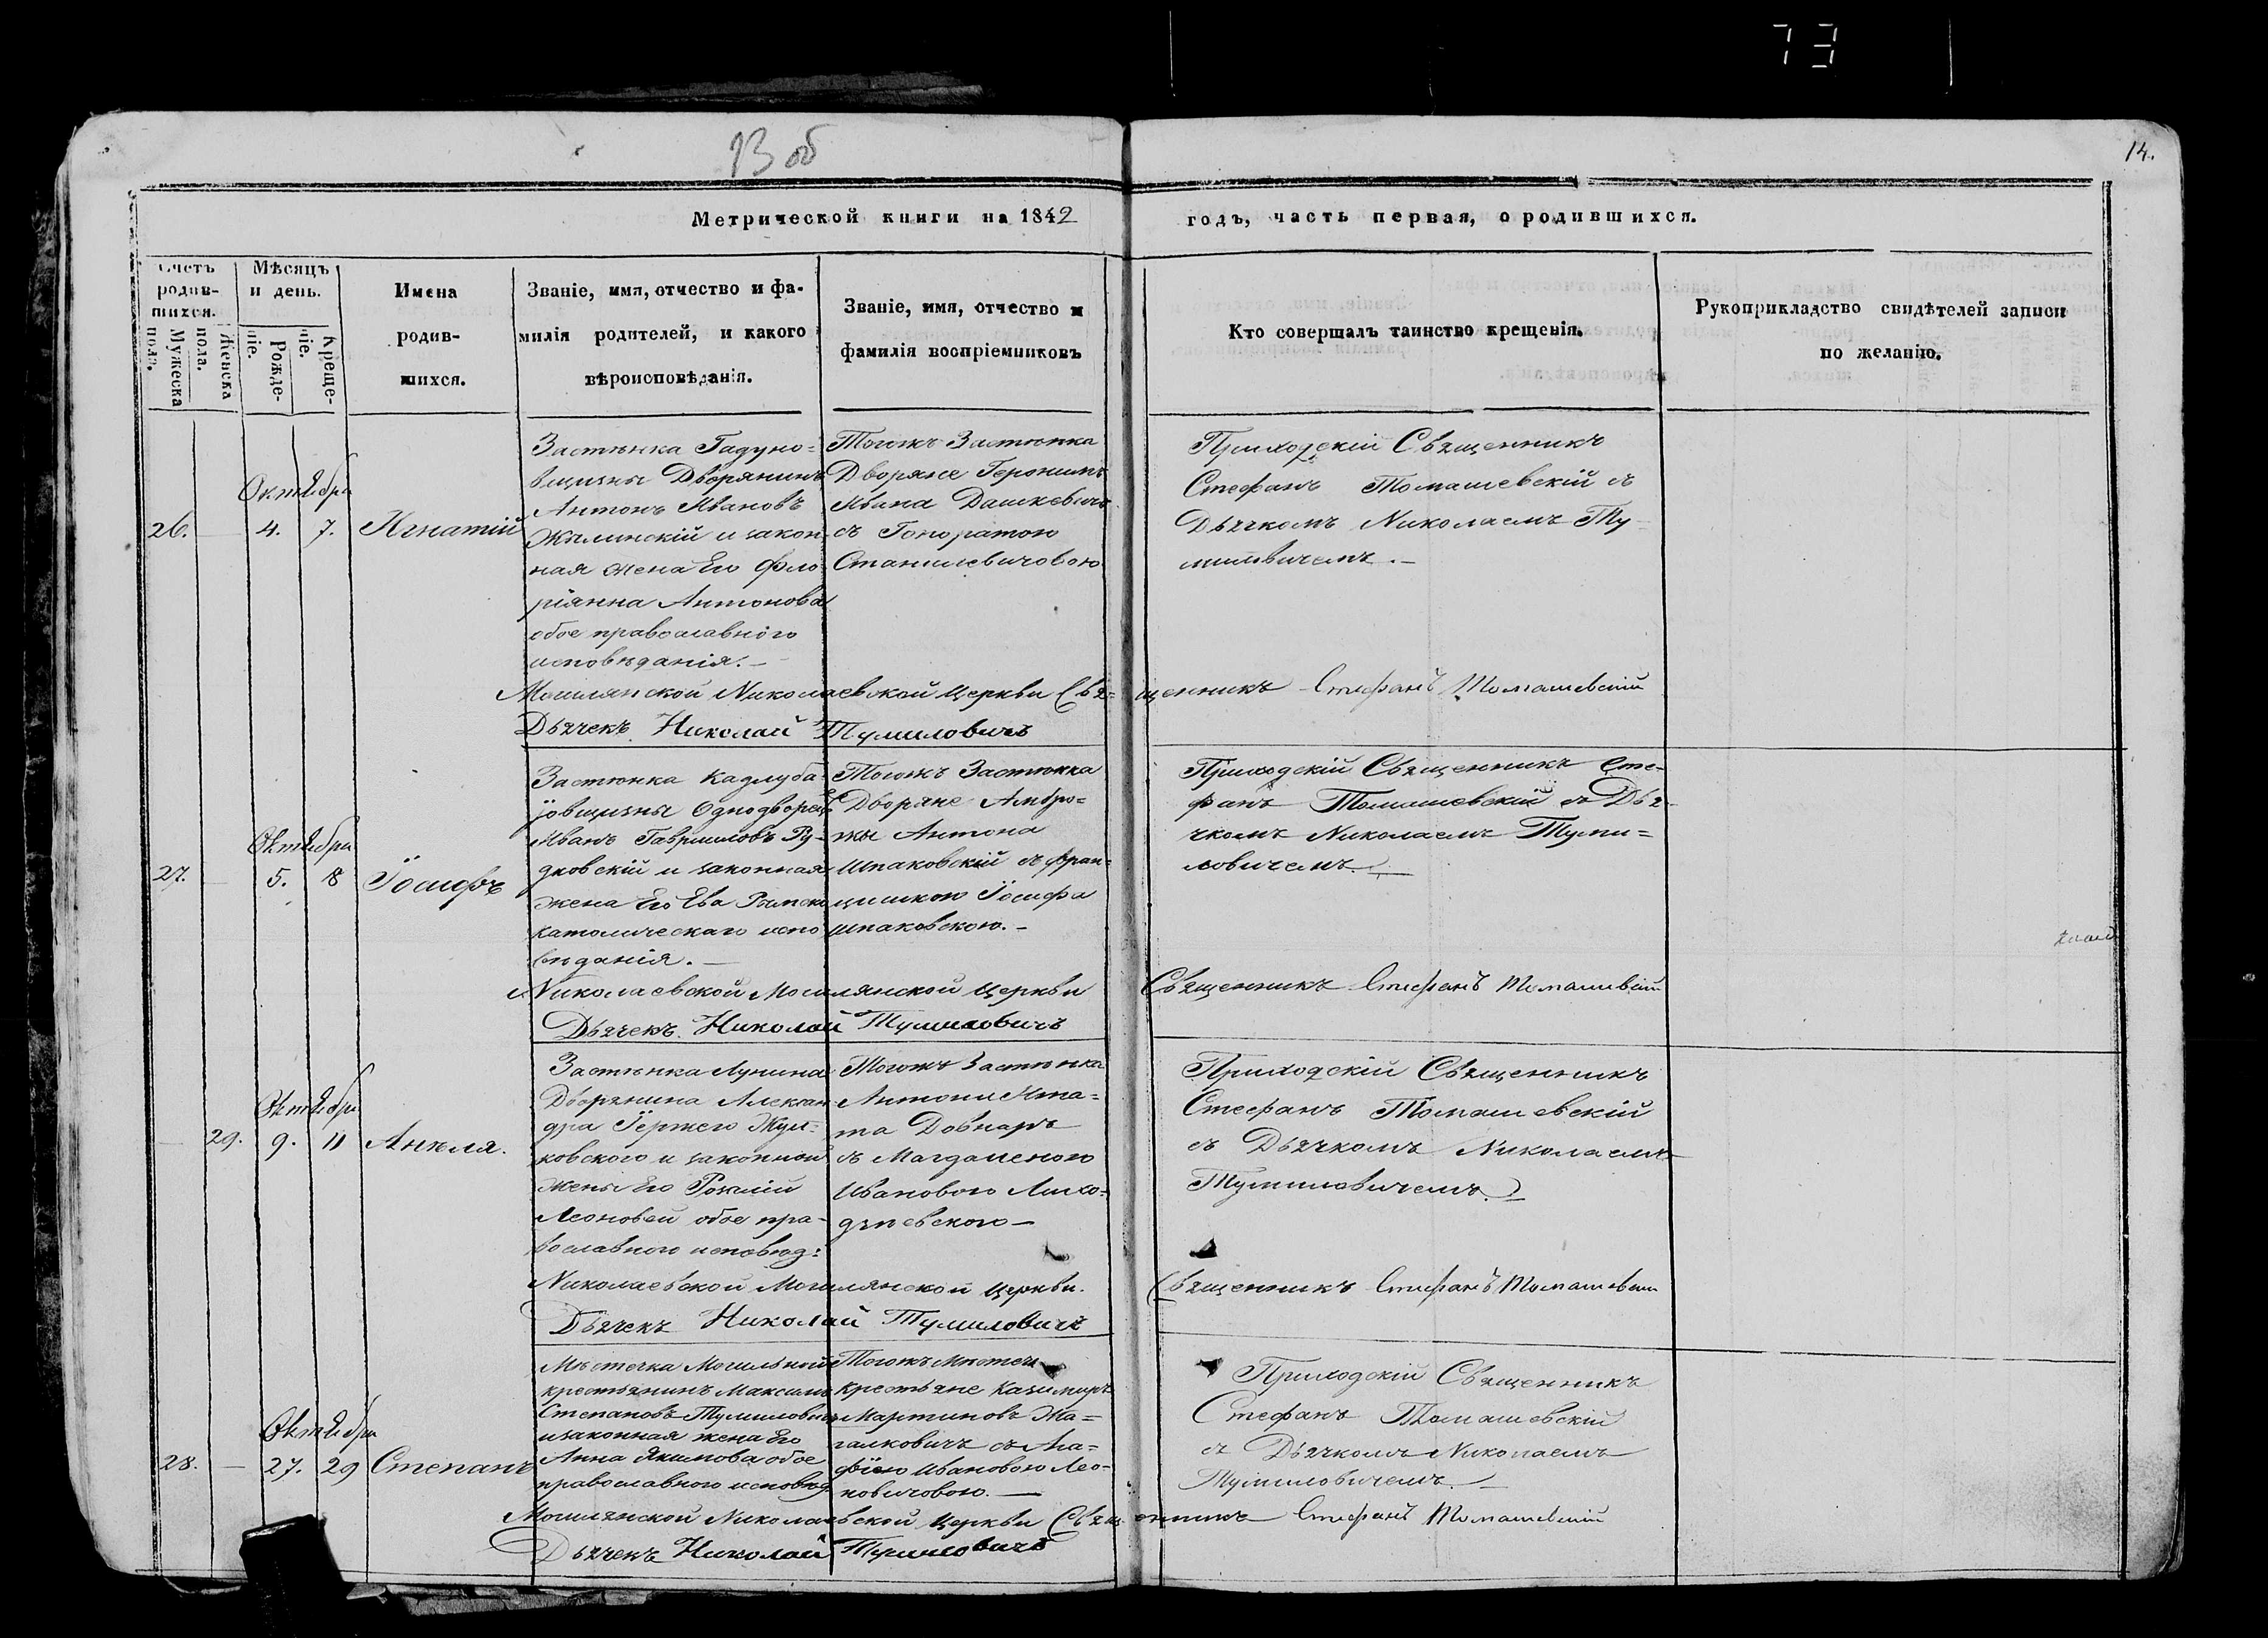 73
13 об
14.
Метрической книги на 1842 годъ, часть первая, о родившихся.
Счетъ родив-
шихся.
Мужеска
пола.
Женска
пола.
Мѣсяцъ
и день.
Рожде-
ніе.
Креще-
ніе.
Имена
родив-
шихся.
Званіе, имя, отчество и фа-
милія родителей, и какого
вѣроисповѣданія.
Званіе, имя, отчество и
фамилія воспріемниковъ
Кто совершалъ таинство крещенія.
Рукоприкладство свидѣтелей записи
по желанію.
26.
Октября
4. 7.
Игнатій
Застѣнка Гадуно-
вщизны Дворянинъ
Антонъ Ивановъ
Жилинскій и закон-
ная жена Его Фло
ріянна Антонова
обое православного
исповѣданія.
Тогожъ Застѣнка
Дворяне Геронимъ
Ивана Дашкевичъ
съ Гоноратою
Станилевичовою
Приходскій Священникъ
Стефанъ Томашевскій съ
Дьячкомъ Николаемъ Ту-
миловичемъ.
Могилянской Николаевской Церкви Священникъ Стефанъ Томашевскій
Дьячекъ Николай Тумиловичъ
27.
Октября
5. 8
Іосифъ
Застѣнка Кадлуба
іовщизны Однодворецъ
Иванъ Гавриловъ Ру-
дковскій и законная
жена Его Ева Римско
католическаго испо
вѣданія.
Тогожъ Застѣнка
Дворяне Амбро-
жы Антона
Шпаковскій съ Фран-
цишкою Іосифа
Шпаковскою.
Приходскій Священникъ Сте-
фанъ Томашевскій съ Дья-
чкомъ Николаемъ Туми-
ловичемъ.
Николаевской Могилянской Церкви Священникъ Стефанъ Томашевскій
Дьячекъ Николай Тумиловичъ
29.
Октября
9. 11
Анѣля.
Застѣнка Лунина
Дворянина Алексан
дра Гержего Жул-
ковского и законной
жены Его Розаліи
Леоновой обое пра-
вославного исповѣд:
Тогожъ Застѣнка
Антони Игна-
та Довнаръ
съ Магдаленою
Ивановою Лихо-
дзіевского
Приходскій Священникъ
Стефанъ Томашевскій
съ Дьячкомъ Николаемъ
Тумиловичемъ.
Николаевской Могилянской Церкви. Священникъ Стефанъ Томашевскій
Дьячекъ Николай Тумиловичъ
28.
Октября
27. 29
Степанъ
Мѣстечка Могильной
крестьянинъ Максимъ
Степановъ Тумиловичъ
и законная жена Его
Анна Якимова обое
православного исповѣд
Тогожъ Мѣстеч
крестьяне Казимиръ
Мартиновъ Жа-
галковичъ съ Ага-
фіею Ивановою Лео-
новичовою.
Приходскій Священникъ
Стефанъ Томашевскій
съ Дьячкомъ Николаемъ
Тумиловичемъ.
Могилянской Николаевской Церкви Священникъ Стефанъ Томашевскій
Дьячекъ Николай Тумиловичъ